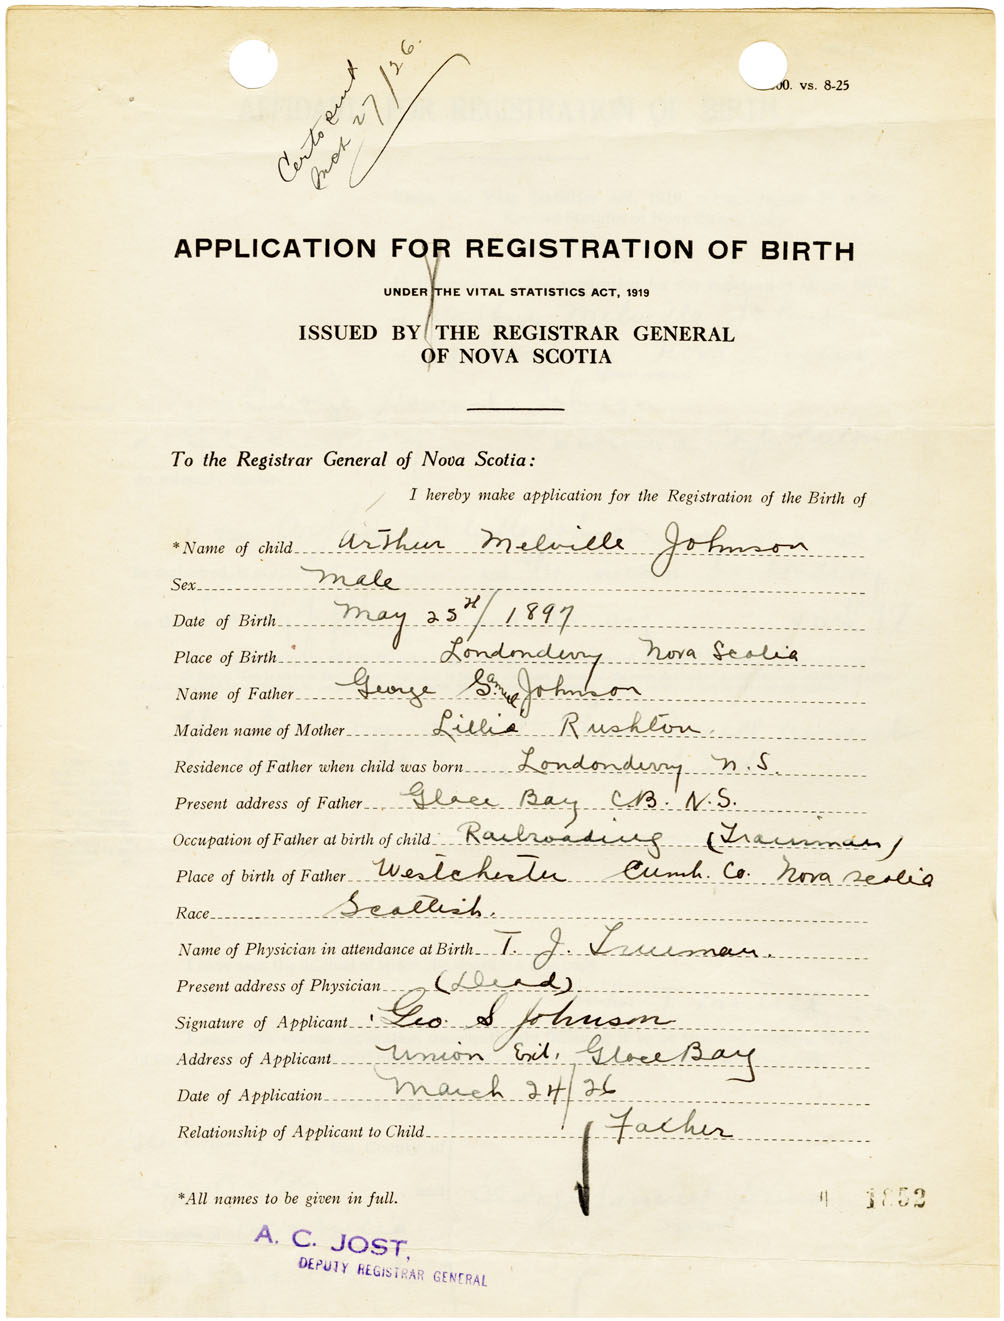 Cert sent
Mch 27/26.
00. vs. 8-25
APPLICATION FOR REGISTRATION OF BIRTH
UNDER THE VITAL STATISTICS ACT, 1919
ISSUED BY THE REGISTRAR GENERAL
OF NOVA SCOTIA
To the Registrar General of Nova Scotia:
I hereby make application for the Registration of the Birth of
*Name of child Arthur Melville Johnson
Sex Male
Date of Birth May 25th/1897
Place of Birth Londonderry Nova Scotia
Name of Father George Samuel Johnson
Maiden name of Mother Lillie Rushton.
Residence of Father when child was born Londonderry N.S.
Present address of Father Glace Bay C.B. N.S.
Occupation of Father at birth of child Railroading (Trainman)
Place of birth of Father Westchester Cumb. Co. Nova Scotia
Race Scottish.
Name of Physician in attendance at Birth T. J. Trueman.
Present address of Physician (Dead)
Signature of Applicant Geo. S Johnson
Address of Applicant Union Glace Bay
Date of Application March 24/26
Relationship of Applicant to Child Father
*All names to be given in full.
1852
A. C. JOST,
DEPUTY REGISTRAR GENERAL